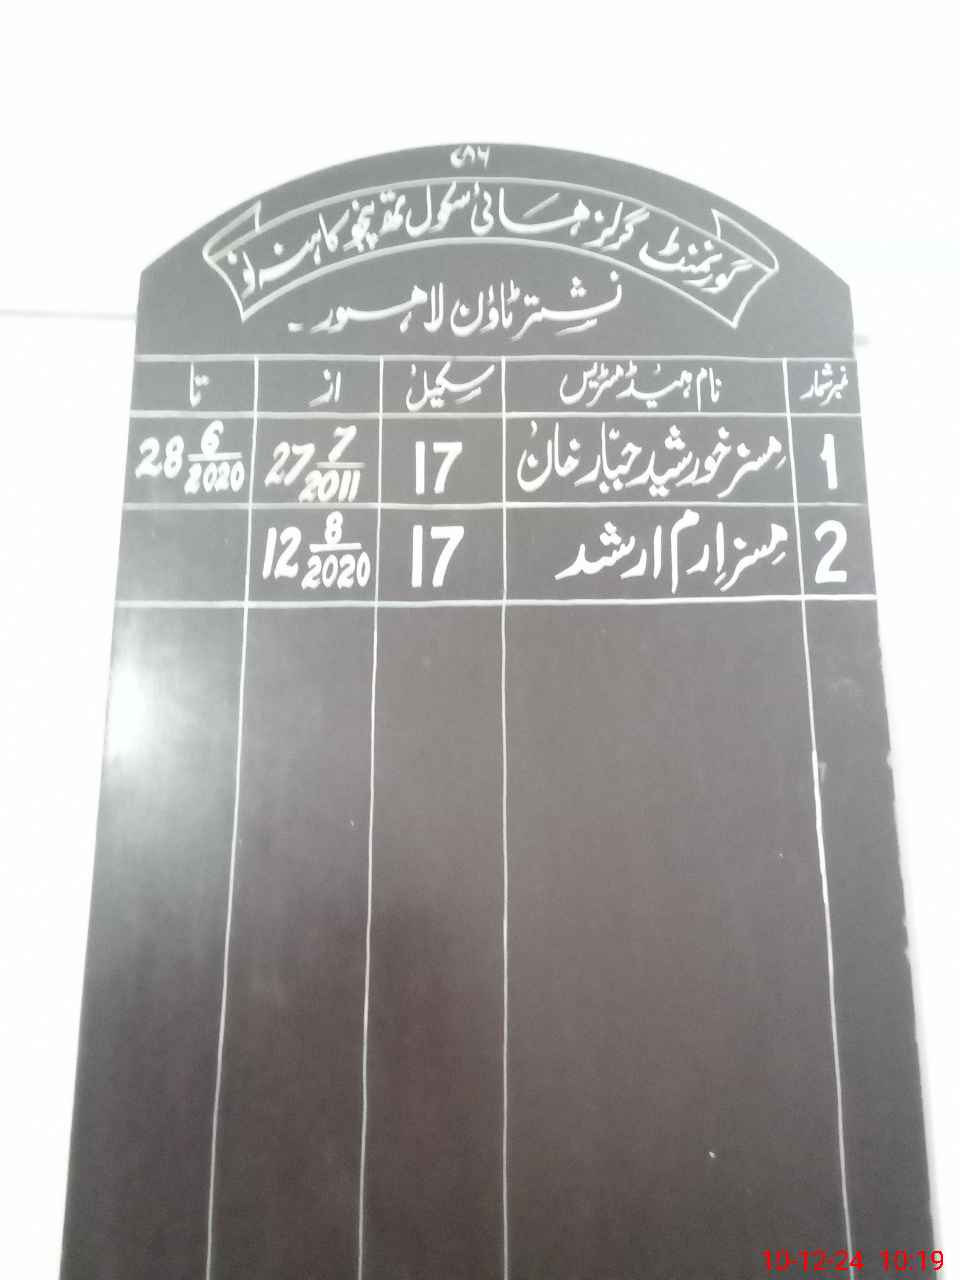 ۷۸۶
گورنمنٹ گرلز ہائی سکول تھہ پنجو کاہنہ نو
نشتر ٹاؤن لاہور۔
نمبر شمار نام ہیڈ مسٹریس سکیل از تا
1 مسز خورشید جبّار خان 17 27 7/2011 28 6/2020
2 مسز اِرم ارشد 17 12 8/2020
10-12-24 10:19